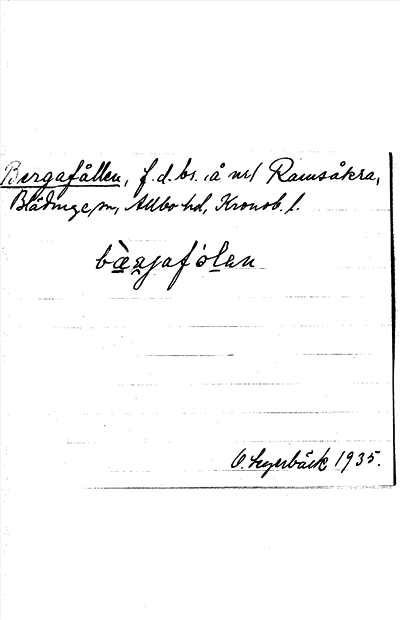 Bergafållen, f.d. bs. å nr 1 Ramsåkra,
Blädinge sn, Allbo hd, Kronob. l.
bæ̀rjafólen
O. Legerbäck 1935.